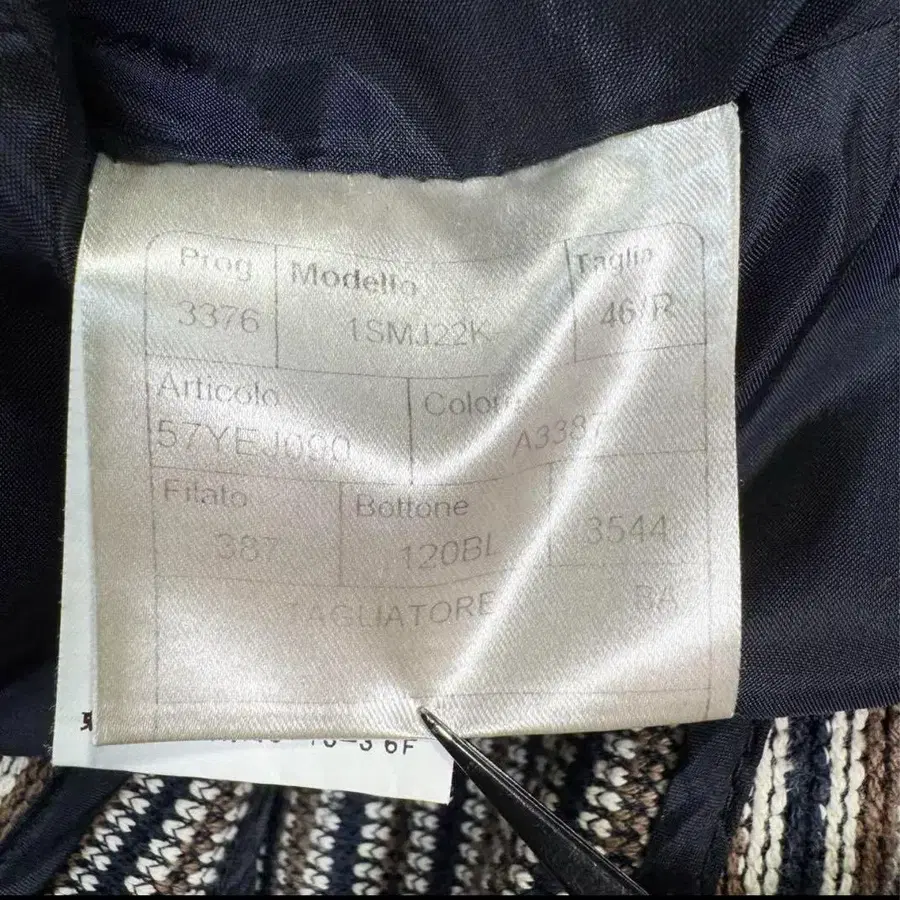 Prog Modello Taglia
3376 1SMJ22K 46/R
Articolo Colore
57YEJ090 A3387
Filato Bottone
387 120BL 3544
TAGLIATORE BA